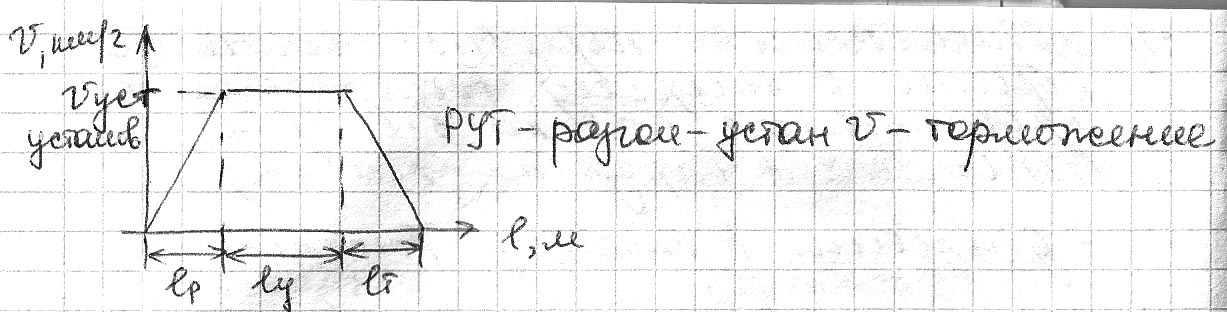 V, км/г
Vуст
установ
РУТ - разгон - устан V - торможение
l, м
lр lу lт